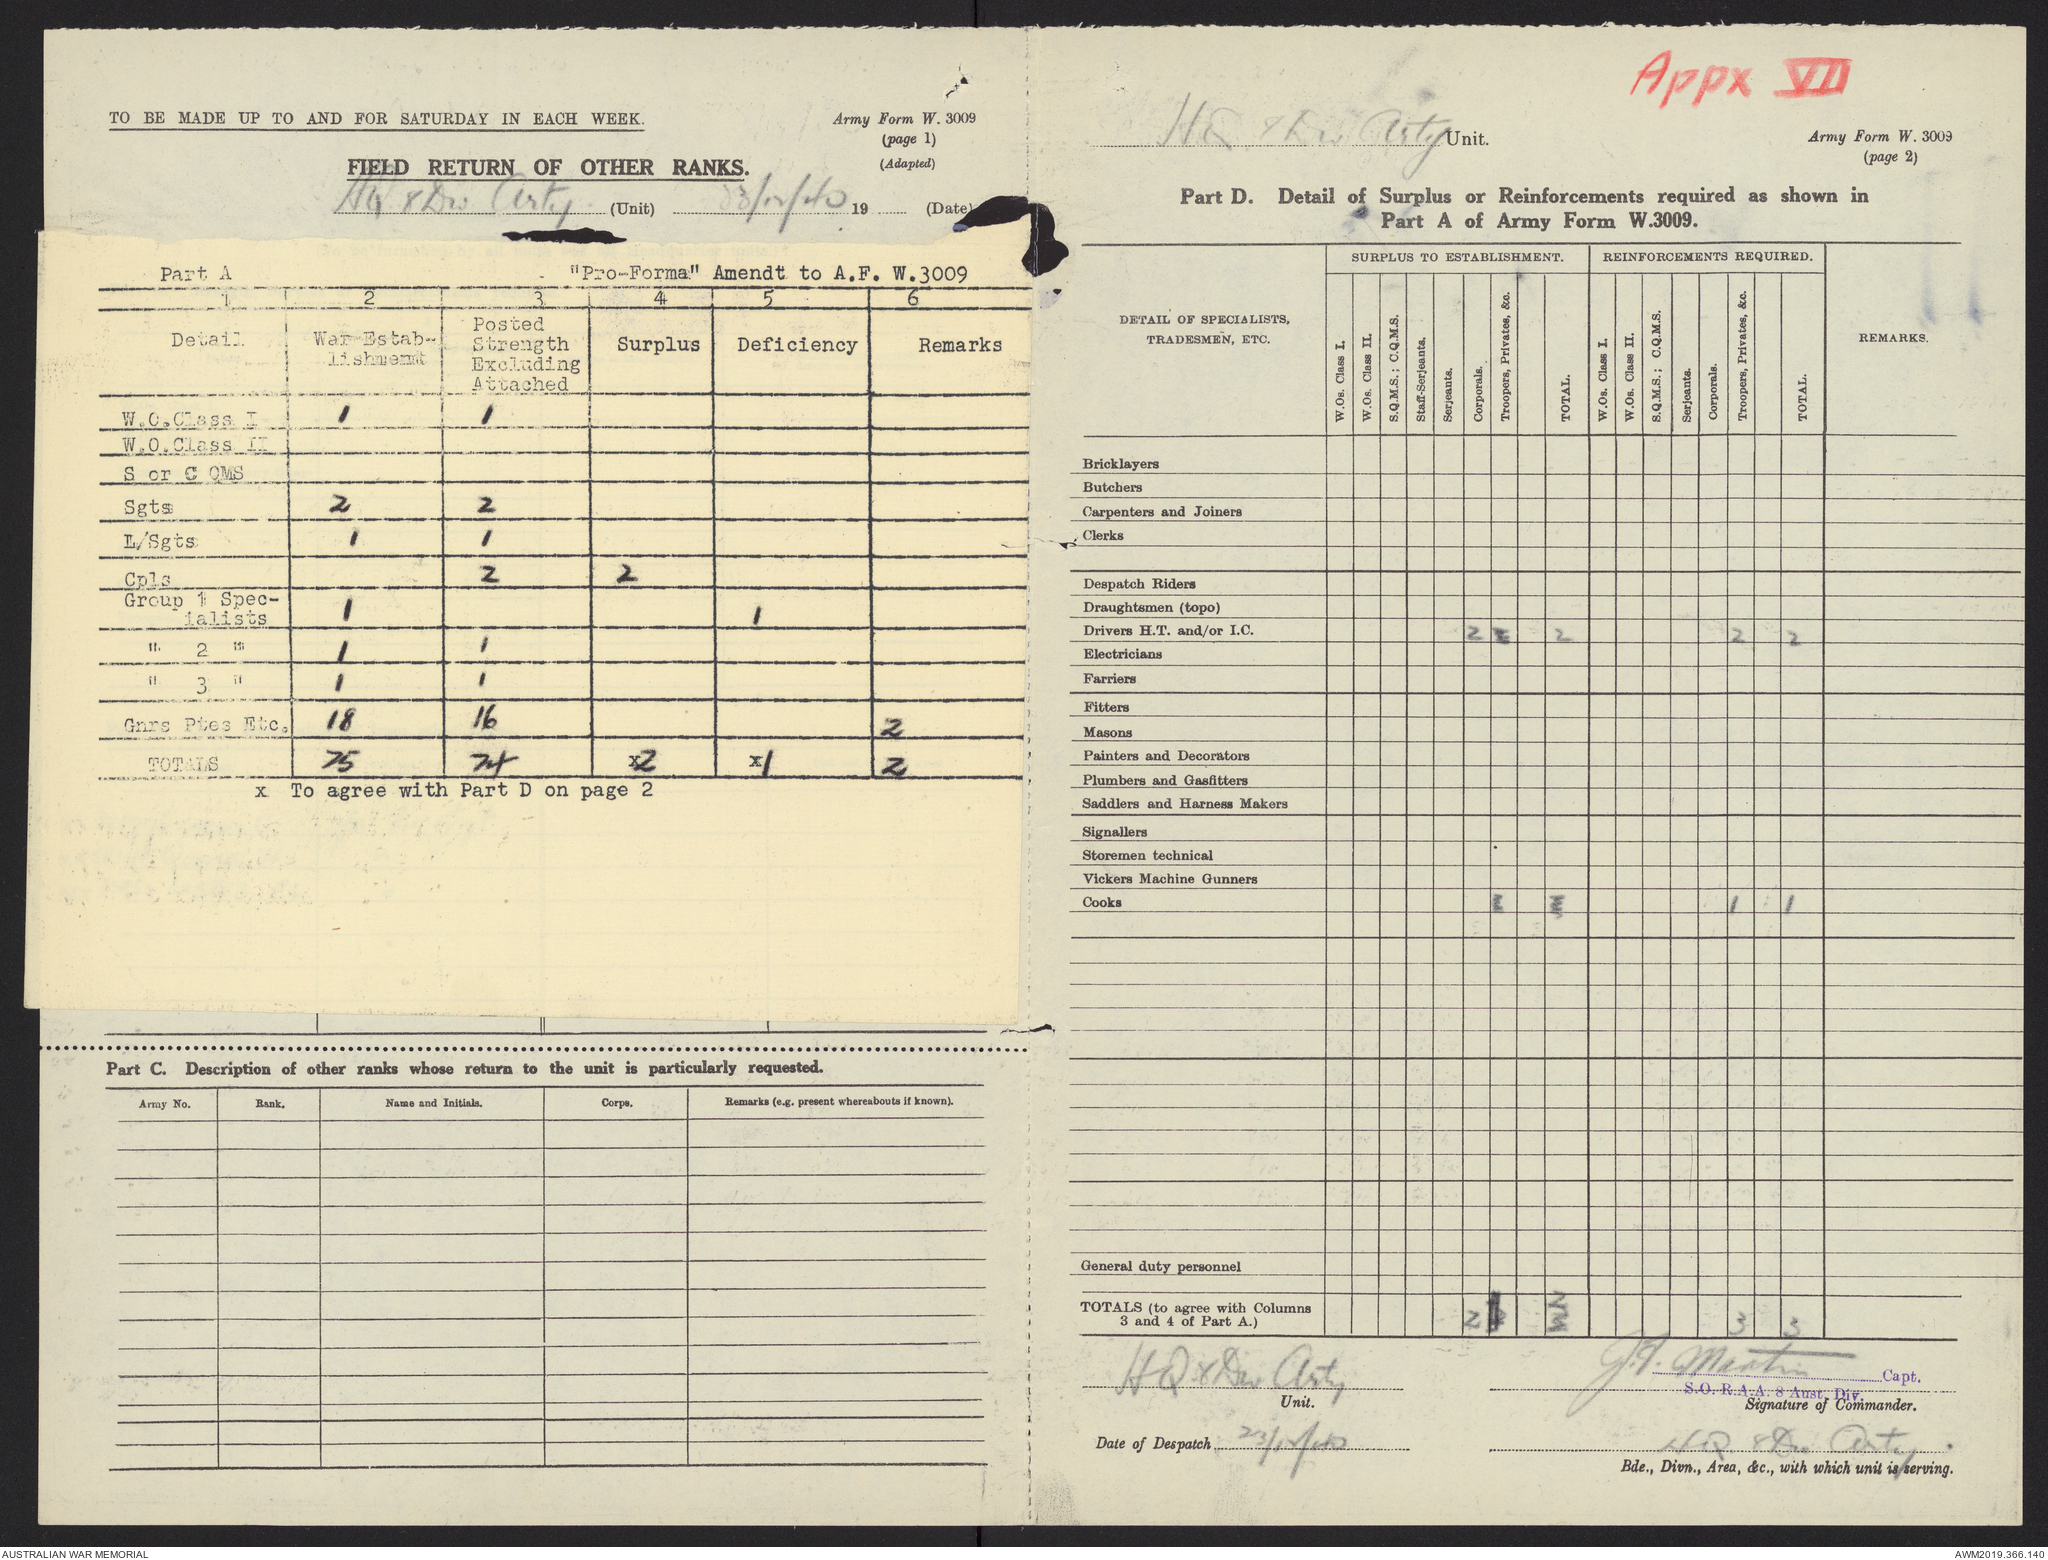 TO BE MADE UP TO AND FOR SATURDAY IN EACH WEEK.
Army Form W. 3009
(page 1)
(Adapted)
FIELD RETURN OF OTHER RANKS.
HQ 8 Div Arty (Unit) 23/12/40 19 (Date)
Part A "Pro-Forma" Amendt to A.F. W.3009
1 2 3 4 5 6
Detail War Estab-lishment Posted Strength Excluding Attached Surplus Deficiency Remarks
W.O.Class I 1 1
W.O.Class II
S or C QMS
Sgts 2 2
L/Sgts 1 1
Cpls 2 2
Group 1 Spec-
ialists 1 1
" 2 " 1 1
" 3 " 1 1
Gnrs Ptes Etc. 18 16 2
TOTALS 25 24 x2 x1 2
x To agree with Part D on page 2
Part C. Description of other ranks whose return to the unit is particularly requested.
Army No. Rank. Name and Initials. Corps. Remarks (e.g. present whereabouts if known).
Appx VII
HQ 8 Div Arty Unit.
Army Form W. 3009
(page 2)
Part D. Detail of Surplus or Reinforcements required as shown in
Part A of Army Form W.3009.
DETAIL OF SPECIALISTS,
TRADESMEN, ETC.
SURPLUS TO ESTABLISHMENT.
W.Os. Class I.
W.Os. Class II.
S.Q.M.S.; C.Q.M.S.
Staff-Serjeants.
Serjeants.
Corporals.
Troopers, Privates, &c.
TOTAL.
REINFORCEMENTS REQUIRED.
W.Os. Class I.
W.Os. Class II.
S.Q.M.S.; C.Q.M.S.
Serjeants.
Corporals.
Troopers, Privates, &c.
TOTAL.
REMARKS.
Bricklayers
Butchers
Carpenters and Joiners
Clerks
Despatch Riders
Draughtsmen (topo)
Drivers H.T. and/or I.C. 2 2 2 2
Electricians
Farriers
Fitters
Masons
Painters and Decorators
Plumbers and Gasfitters
Saddlers and Harness Makers
Signallers
Storemen technical
Vickers Machine Gunners
Cooks 1 1
General duty personnel
TOTALS (to agree with Columns
3 and 4 of Part A.) 2 3 3
HQ 8 Div Arty
Unit.
J.T. Martin Capt.
S.O. R.A.A. 8 Aust. Div.
Signature of Commander.
Date of Despatch 23/12/40
HQ 8 Div Arty.
Bde., Divn., Area, &c., with which unit is serving.
AUSTRALIAN WAR MEMORIAL
AWM2019.366.140